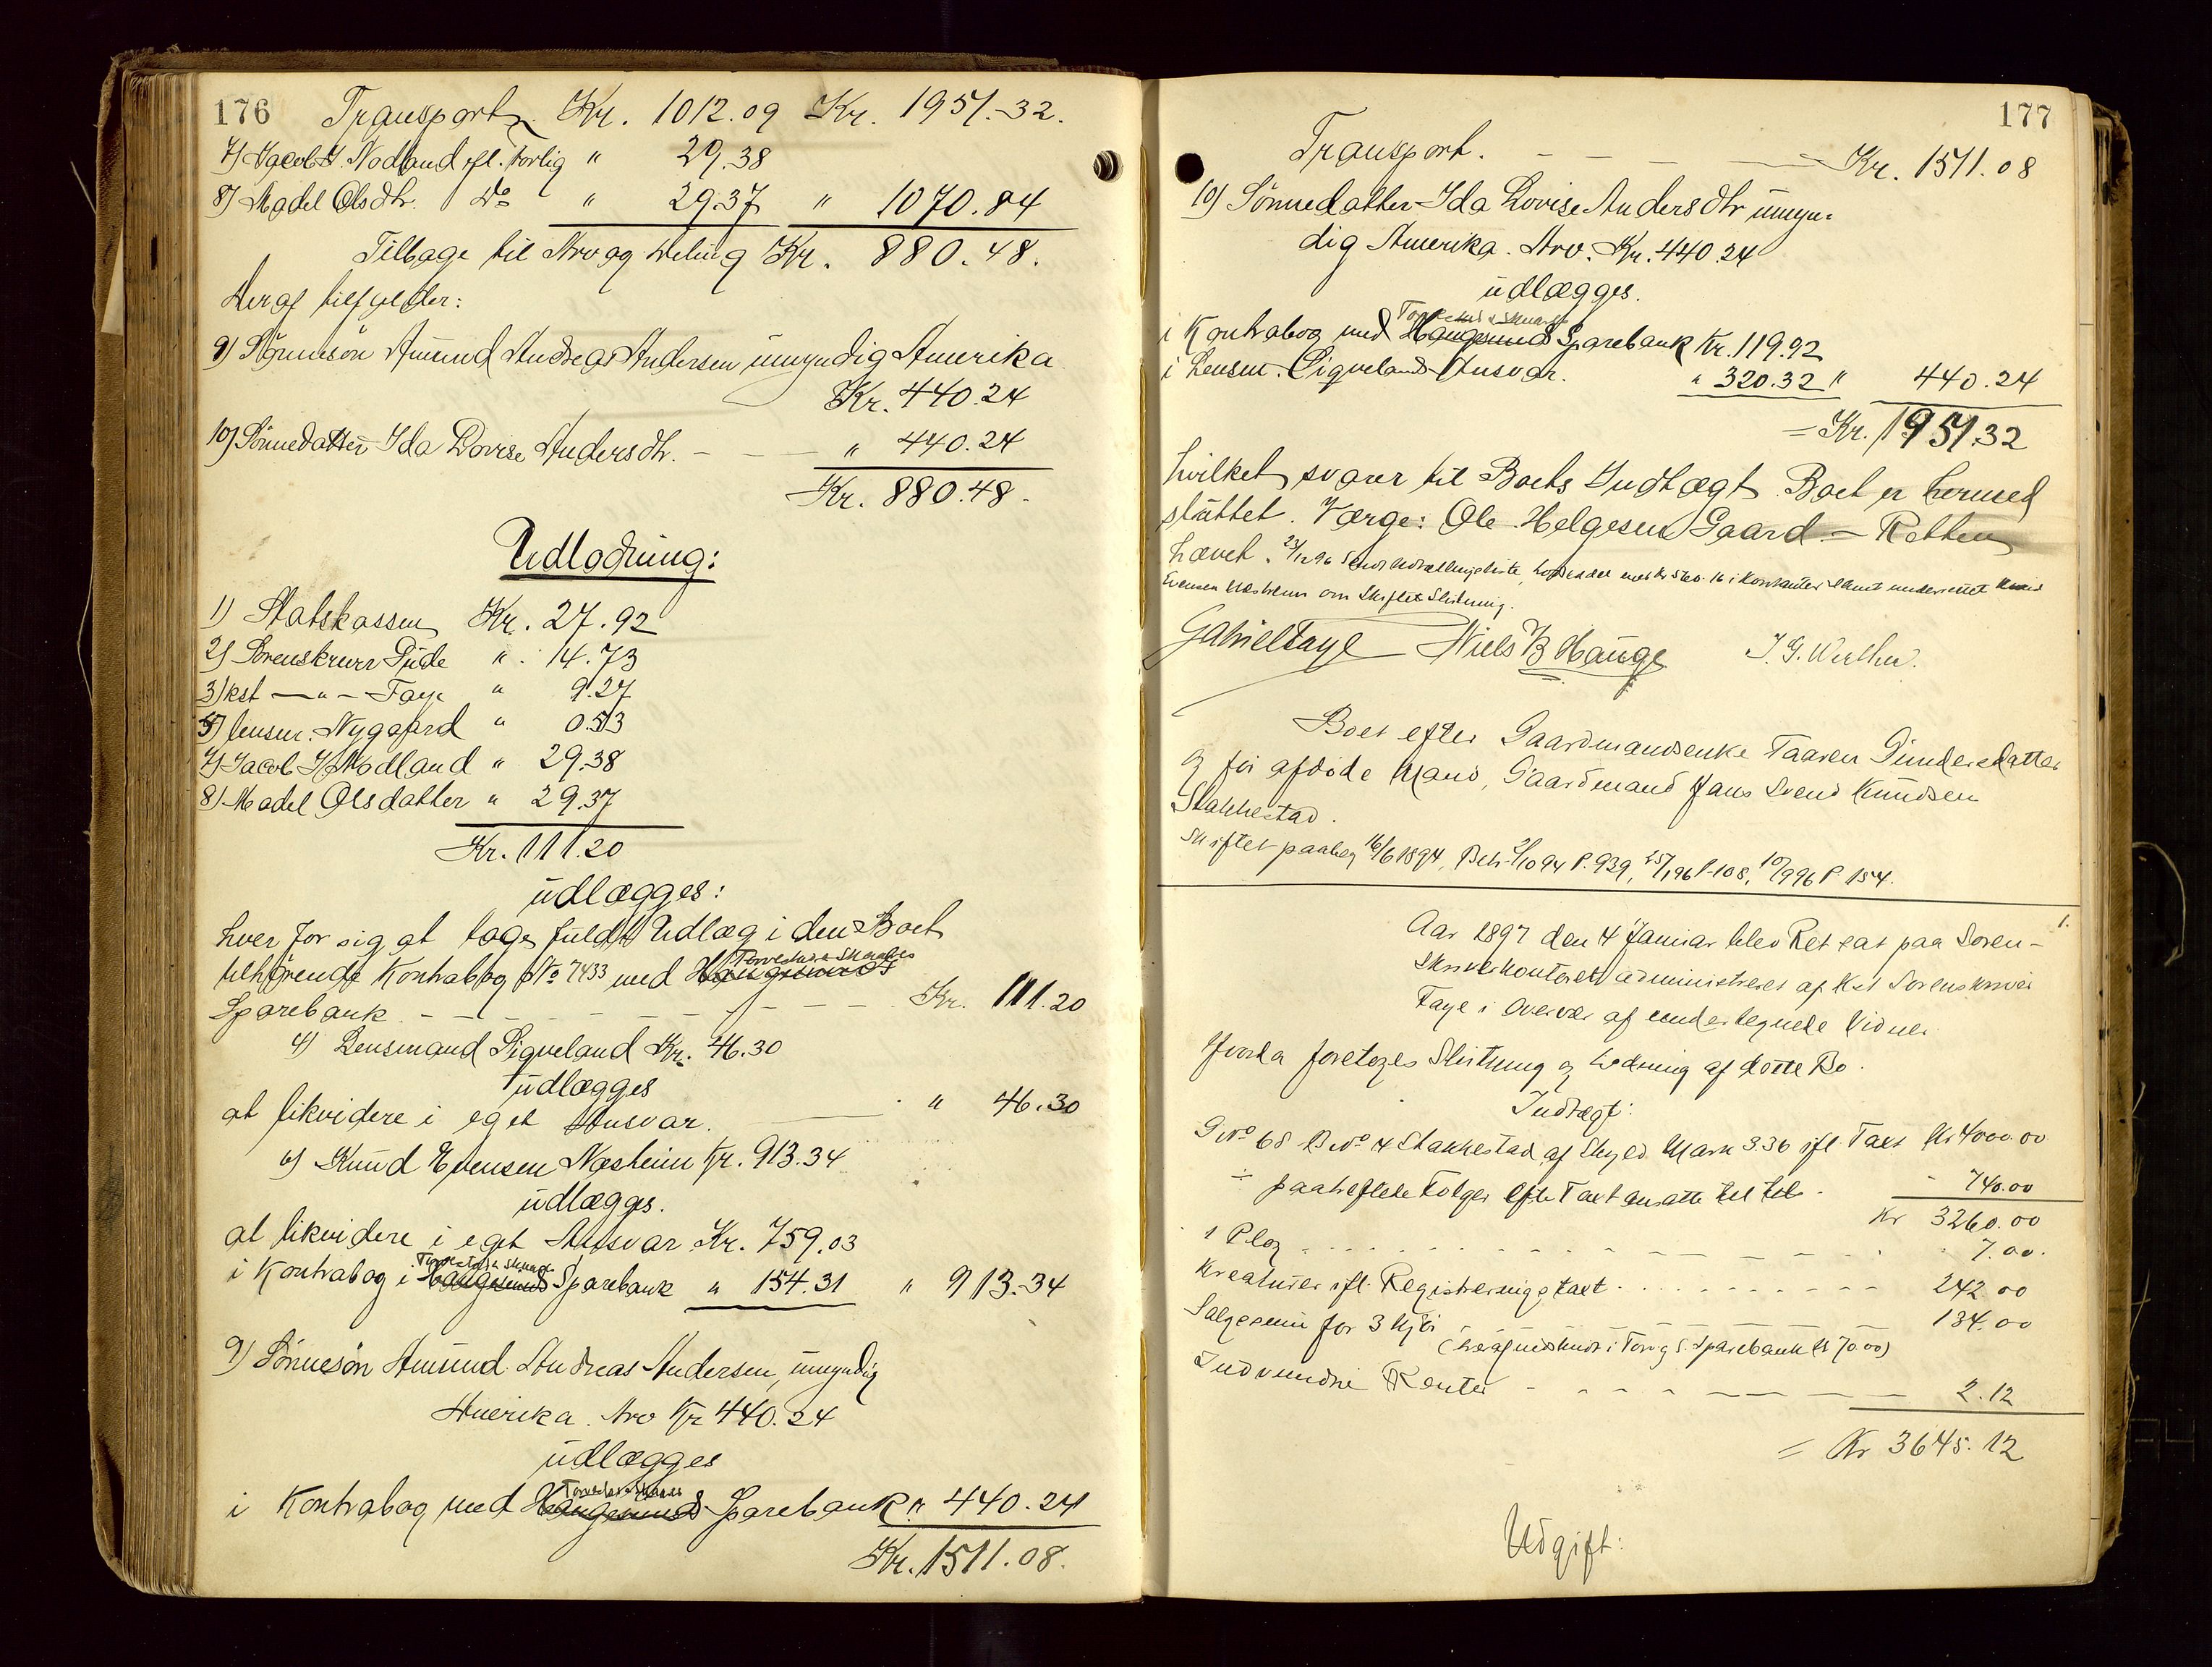 176 Transport Kr. 1012.09 Kr. 1951.32.
7) Jacob J. Nodland ifl. Forlig " 29.38
8) Madel Olsdtr. Do " 29.37 " 1070.84
Tilbage til Arv og Deling Kr. 880.48.
Deraf tilfalder:
9) Sönnesön Amund Andreas Andersen umyndig Amerika
Kr. 440.24
10) Sönnedatter Ida Lovise Andersdtr. - - " 440.24
Kr. 880.48.
Udlodning:
1) Statskassen Kr. 27.92
2) Sorenskriver Gude " 14.73
3) kst — " — Faye " 9.27
5) Lensm. Nygaard " 0.53
7) Jacob J. Nodland " 29.38
8) Madel Olsdatter " 29.37
Kr. 111.20
udlægges:
hver for sig at tage fuldt Udlæg i den Boet
Torvestad & Skaares
tilhörende Kontrabog No 7433 med Haugesunds
Sparebank - - - - - - - Kr. 111.20
4) Lensmand Sigveland Kr. 46.30
udlægges
at likvidere i eget Ansvar. " 46.30
6) Knud Evensen Næsheim Kr. 913.34
udlægges.
at likvidere i eget Ansvar Kr. 759.03
Torvestad & Skaare
i Kontrabog i Haugesunds Sparebank " 154.31 " 913.34
9) Sönnesön Amund Andreas Andersen, umyndig
Amerika. Arv Kr 440.24
udlægges
Torvestad & Skaare
i Kontrabog med Haugesunds Sparebank " 440.24
Kr. 1511.08.
177
Transport. - - - - Kr. 1511.08
10) Sönnedatter Ida Lovise Andersdtr umyn-
dig Amerika. Arv. Kr. 440.24
udlægges.
Torvestad & Skaare
i Kontrabog med Haugesunds Sparebank Kr. 119.92
i Lensm. Sigvelands Ansvar. " 320.32 " 440.24
= Kr. 1951.32
hvilket svarer til Boets Indtægt. Boet er hermed
sluttet. Værge: Ole Helgesen Gaard. — Retten
hævet. 23/12 96 Sendt Udbetalingsliste, Kontanter samt underrettet Knud
Evensen Næsheim om Skiftets Slutning.
Gabriel Faye Niels B Hauge J. G. Wier
Boet efter Gaardmandsenke Taaren Gundersdatter
og før afdøde Mand, Gaardmand Hans Svend Knudsen
Stakkestad.
Skiftet paabeg 16/6 1894, Beh. 2/10 94 P. 939, 25/1 96 P. 108, 10/9 96 P. 154.
1.
Aar 1897 den 4 Januar blev Ret sat paa Soren-
skriverkontoret administreret af Kst Sorenskriver
Faye i Overvær af undertegnede Vidner
Hvorda foretoges Slutning og Lodning af dette Bo.
Indtægt:
GNo 68 BNo 4 Stakkestad af Skyld Mark 3.36 ifl. Taxt Kr 4000.00
÷ paaheftede Folger efter Taxt ansatte til - 740.00
Kr 3260.00
1 Plog - - - - 7.00.
Kreaturer ifl. Registreringstaxt - - - - 242.00
Salgssum for 3 Kjør - - - - 134.00
(heraf indskudt i Torv og S. Sparebank Kr 70.00)
Indvundne Renter - - - - 2.12
= Kr 3645.12
Udgift: